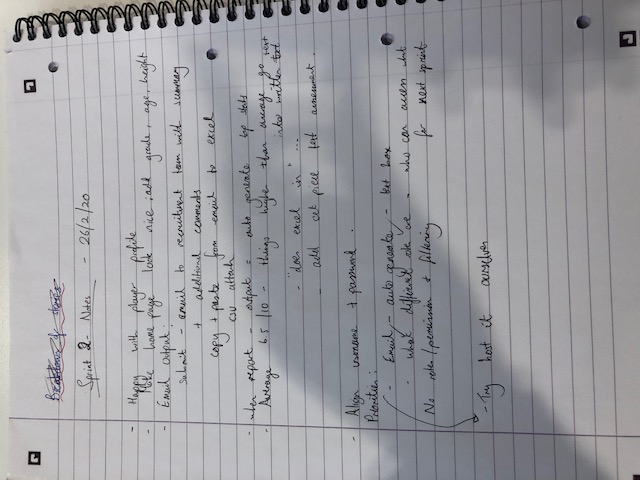 Breakdown of stories
Sprint 2 - Notes - 26/2/20
- Happy with player profile
- Make home page look nice, add grade, age, height
- Email Output:
submit - email to recruitment team with summary
+ additional comments
copy + paste from email to excel
csv attach
- when report - output = auto generate top stats
- Average 6.5/10 - things higher than average go
into written text
- "does excel in" ...
- add set piece text assessment.
- Align username + password.
Priorities:
- Email - auto generate - text box
- what different roles are - who can access what
No roles/permission + filtering for next sprint
- Try host it ourselves